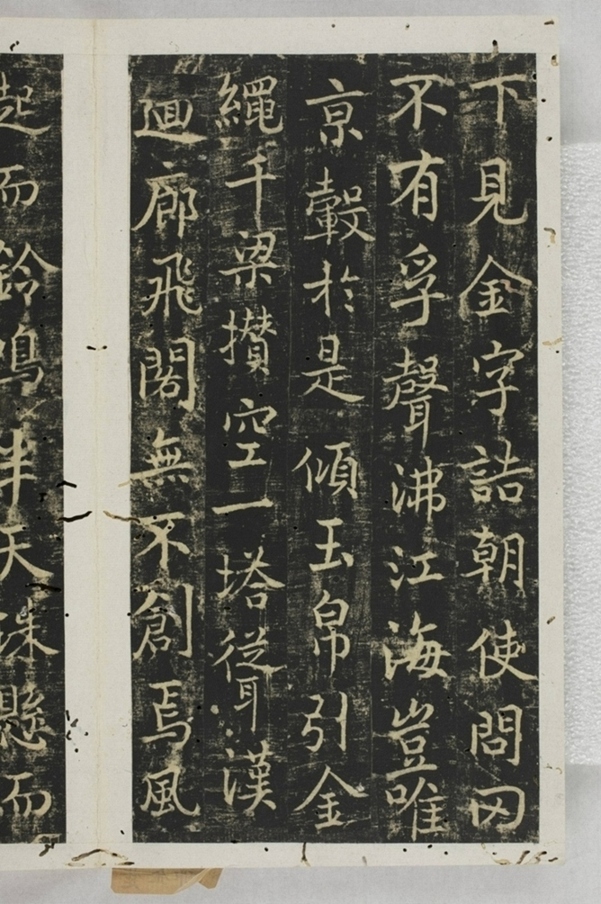 下見金字詰朝使問罔
不有孚聲沸江海豈唯
亰轂於是傾玉帛引金
繩千梁攢空一塔聳漢
迴廊飛閣無不創焉風
起而鈴鳴半天珠懸而